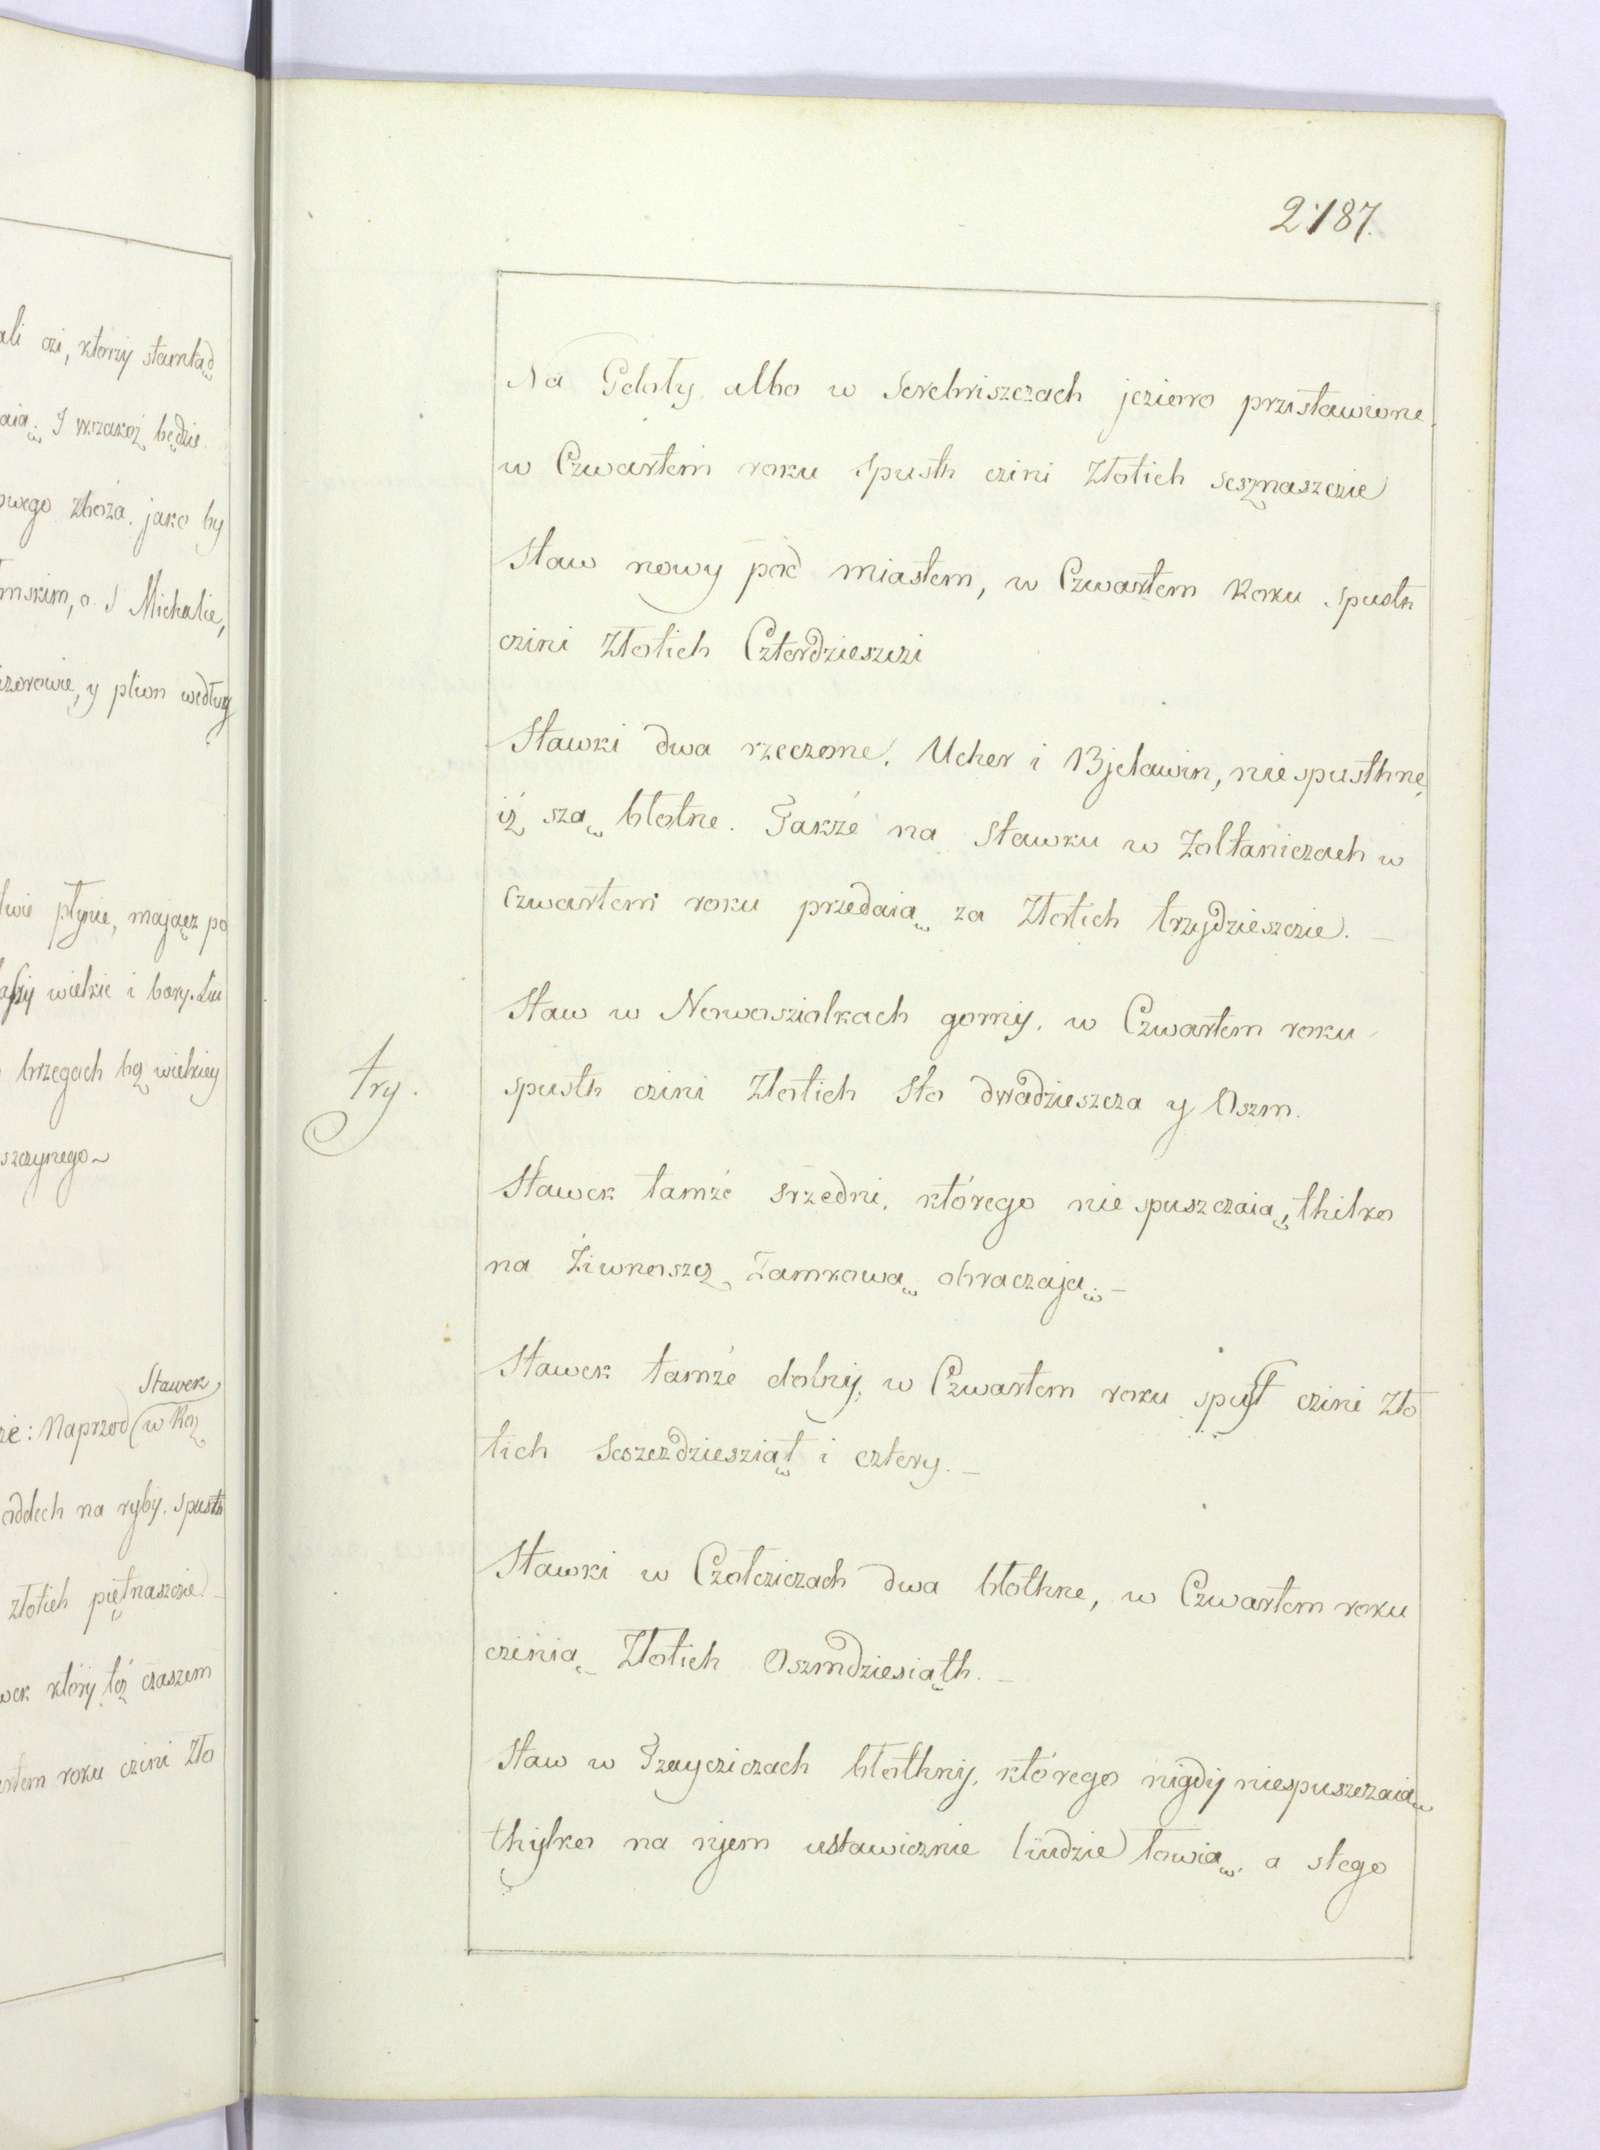 ali czi, ktorzy stamtąd
aią. I wszakoż będzie
owego zboża, jako by
mskim, o S Michalie,
izorowie, y plion według
liwie płynie, mającz po
assy wielkie i bory. Lu
brzegach bez wielkiey
szczynego
Stawek
ze: Naprzod w Roz
addech na ryby. spusth
złotich piętnaszczie
wek który tez czaszem
artem roku czini Zło
2187.
Na Gdoły albo w Serebriszczach jezioro przistawione.
w Czwartem roku spusth czini Złotich sesznaszczie
Staw nowy pod miastem, w Czwartem Roku spusth
czini Złotich Czterdzieszczi
Stawki dwa rzeczone, Ucher i Bjeławin, nie spusthne,
iż szą błotne. Także na Stawku w Żołtaniczach w
Czwartem roku przedaią za Złotich trzydzieszczie.
Staw w Nowosziolkach gorny, w Czwartem roku
spusth czini Złotich Sto dwadzieszcza y Oszm.
try.
Stawek tamże srzedni, którego nie spuszczaią, thilko
na Żiwnoszcz Zamkową obraczają.
Stawek tamże dolny, w Czwartem roku spust czini Zło
tich Seszczdziesziąt i cztery.
Stawki w Czołcziczach dwa błothne, w Czwartem roku
czinią Złotich Oszmdziesiąth.
Staw w Tzayczichach błothny, którego nigdy niespuszczaią
thylko na njem ustawicznie liudzie łowią, a stego